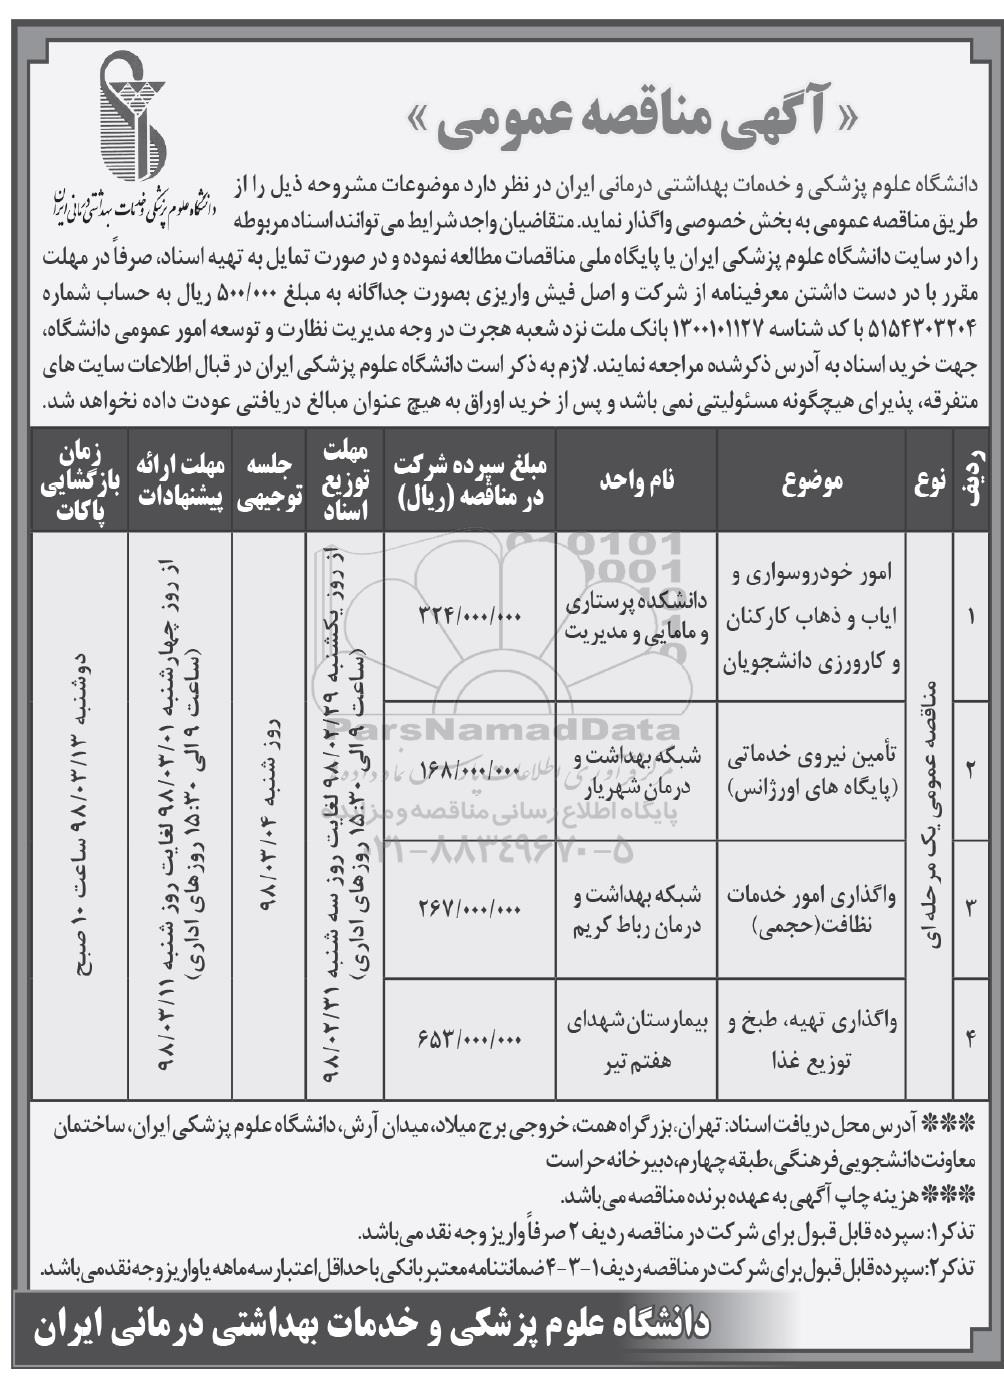 « آگهی مناقصه عمومی »
دانشگاه علوم پزشکی و خدمات بهداشتی درمانی ایران
دانشگاه علوم پزشکی و خدمات بهداشتی درمانی ایران در نظر دارد موضوعات مشروحه ذیل را از
طریق مناقصه عمومی به بخش خصوصی واگذار نماید. متقاضیان واجد شرایط می توانند اسناد مربوطه
را در سایت دانشگاه علوم پزشکی ایران یا پایگاه ملی مناقصات مطالعه نموده و در صورت تمایل به تهیه اسناد، صرفاً در مهلت
مقرر با در دست داشتن معرفینامه از شرکت و اصل فیش واریزی بصورت جداگانه به مبلغ ۵۰۰/۰۰۰ ریال به حساب شماره
۵۱۵۴۳۰۳۲۰۴ با کد شناسه ۱۳۰۰۱۰۱۱۲۷ بانک ملت نزد شعبه هجرت در وجه مدیریت نظارت و توسعه امور عمومی دانشگاه،
جهت خرید اسناد به آدرس ذکرشده مراجعه نمایند. لازم به ذکر است دانشگاه علوم پزشکی ایران در قبال اطلاعات سایت های
متفرقه، پذیرای هیچگونه مسئولیتی نمی باشد و پس از خرید اوراق به هیچ عنوان مبالغ دریافتی عودت داده نخواهد شد.
ردیف
نوع
موضوع
نام واحد
مبلغ سپرده شرکت
در مناقصه (ریال)
مهلت
توزیع
اسناد
جلسه
توجیهی
مهلت ارائه
پیشنهادات
زمان
بازگشایی
پاکات
۱
مناقصه عمومی یک مرحله ای
امور خودروسواری و
ایاب و ذهاب کارکنان
و کارورزی دانشجویان
دانشکده پرستاری
و مامایی و مدیریت
۳۲۴/۰۰۰/۰۰۰
از روز یکشنبه ۹۸/۰۲/۲۹ لغایت روز سه شنبه ۹۸/۰۲/۳۱
(ساعت ۹ الی ۱۵:۳۰ روزهای اداری)
روز شنبه ۹۸/۰۳/۰۴
از روز چهارشنبه ۹۸/۰۳/۰۱ لغایت روز شنبه ۹۸/۰۳/۱۱
(ساعت ۹ الی ۱۵:۳۰ روزهای اداری)
دوشنبه ۹۸/۰۳/۱۳ ساعت ۱۰ صبح
۲
تأمین نیروی خدماتی
(پایگاه های اورژانس)
شبکه بهداشت و
درمان شهریار
۱۶۸/۰۰۰/۰۰۰
۳
واگذاری امور خدمات
نظافت(حجمی)
شبکه بهداشت و
درمان رباط کریم
۲۶۷/۰۰۰/۰۰۰
۴
واگذاری تهیه، طبخ و
توزیع غذا
بیمارستان شهدای
هفتم تیر
۶۵۳/۰۰۰/۰۰۰
ParsNamadData
پایگاه اطلاع رسانی مناقصه و مزایده
۰۲۱-۸۸۳۴۹۶۷۰-۵
*** آدرس محل دریافت اسناد: تهران، بزرگراه همت، خروجی برج میلاد، میدان آرش، دانشگاه علوم پزشکی ایران، ساختمان
معاونت دانشجویی فرهنگی، طبقه چهارم، دبیرخانه حراست
*** هزینه چاپ آگهی به عهده برنده مناقصه می باشد.
تذکر۱: سپرده قابل قبول برای شرکت در مناقصه ردیف ۲ صرفاً واریز وجه نقد می باشد.
تذکر۲: سپرده قابل قبول برای شرکت در مناقصه ردیف ۱-۳-۴ ضمانتنامه معتبر بانکی با حداقل اعتبار سه ماهه یا واریز وجه نقد می باشد.
دانشگاه علوم پزشکی و خدمات بهداشتی درمانی ایران